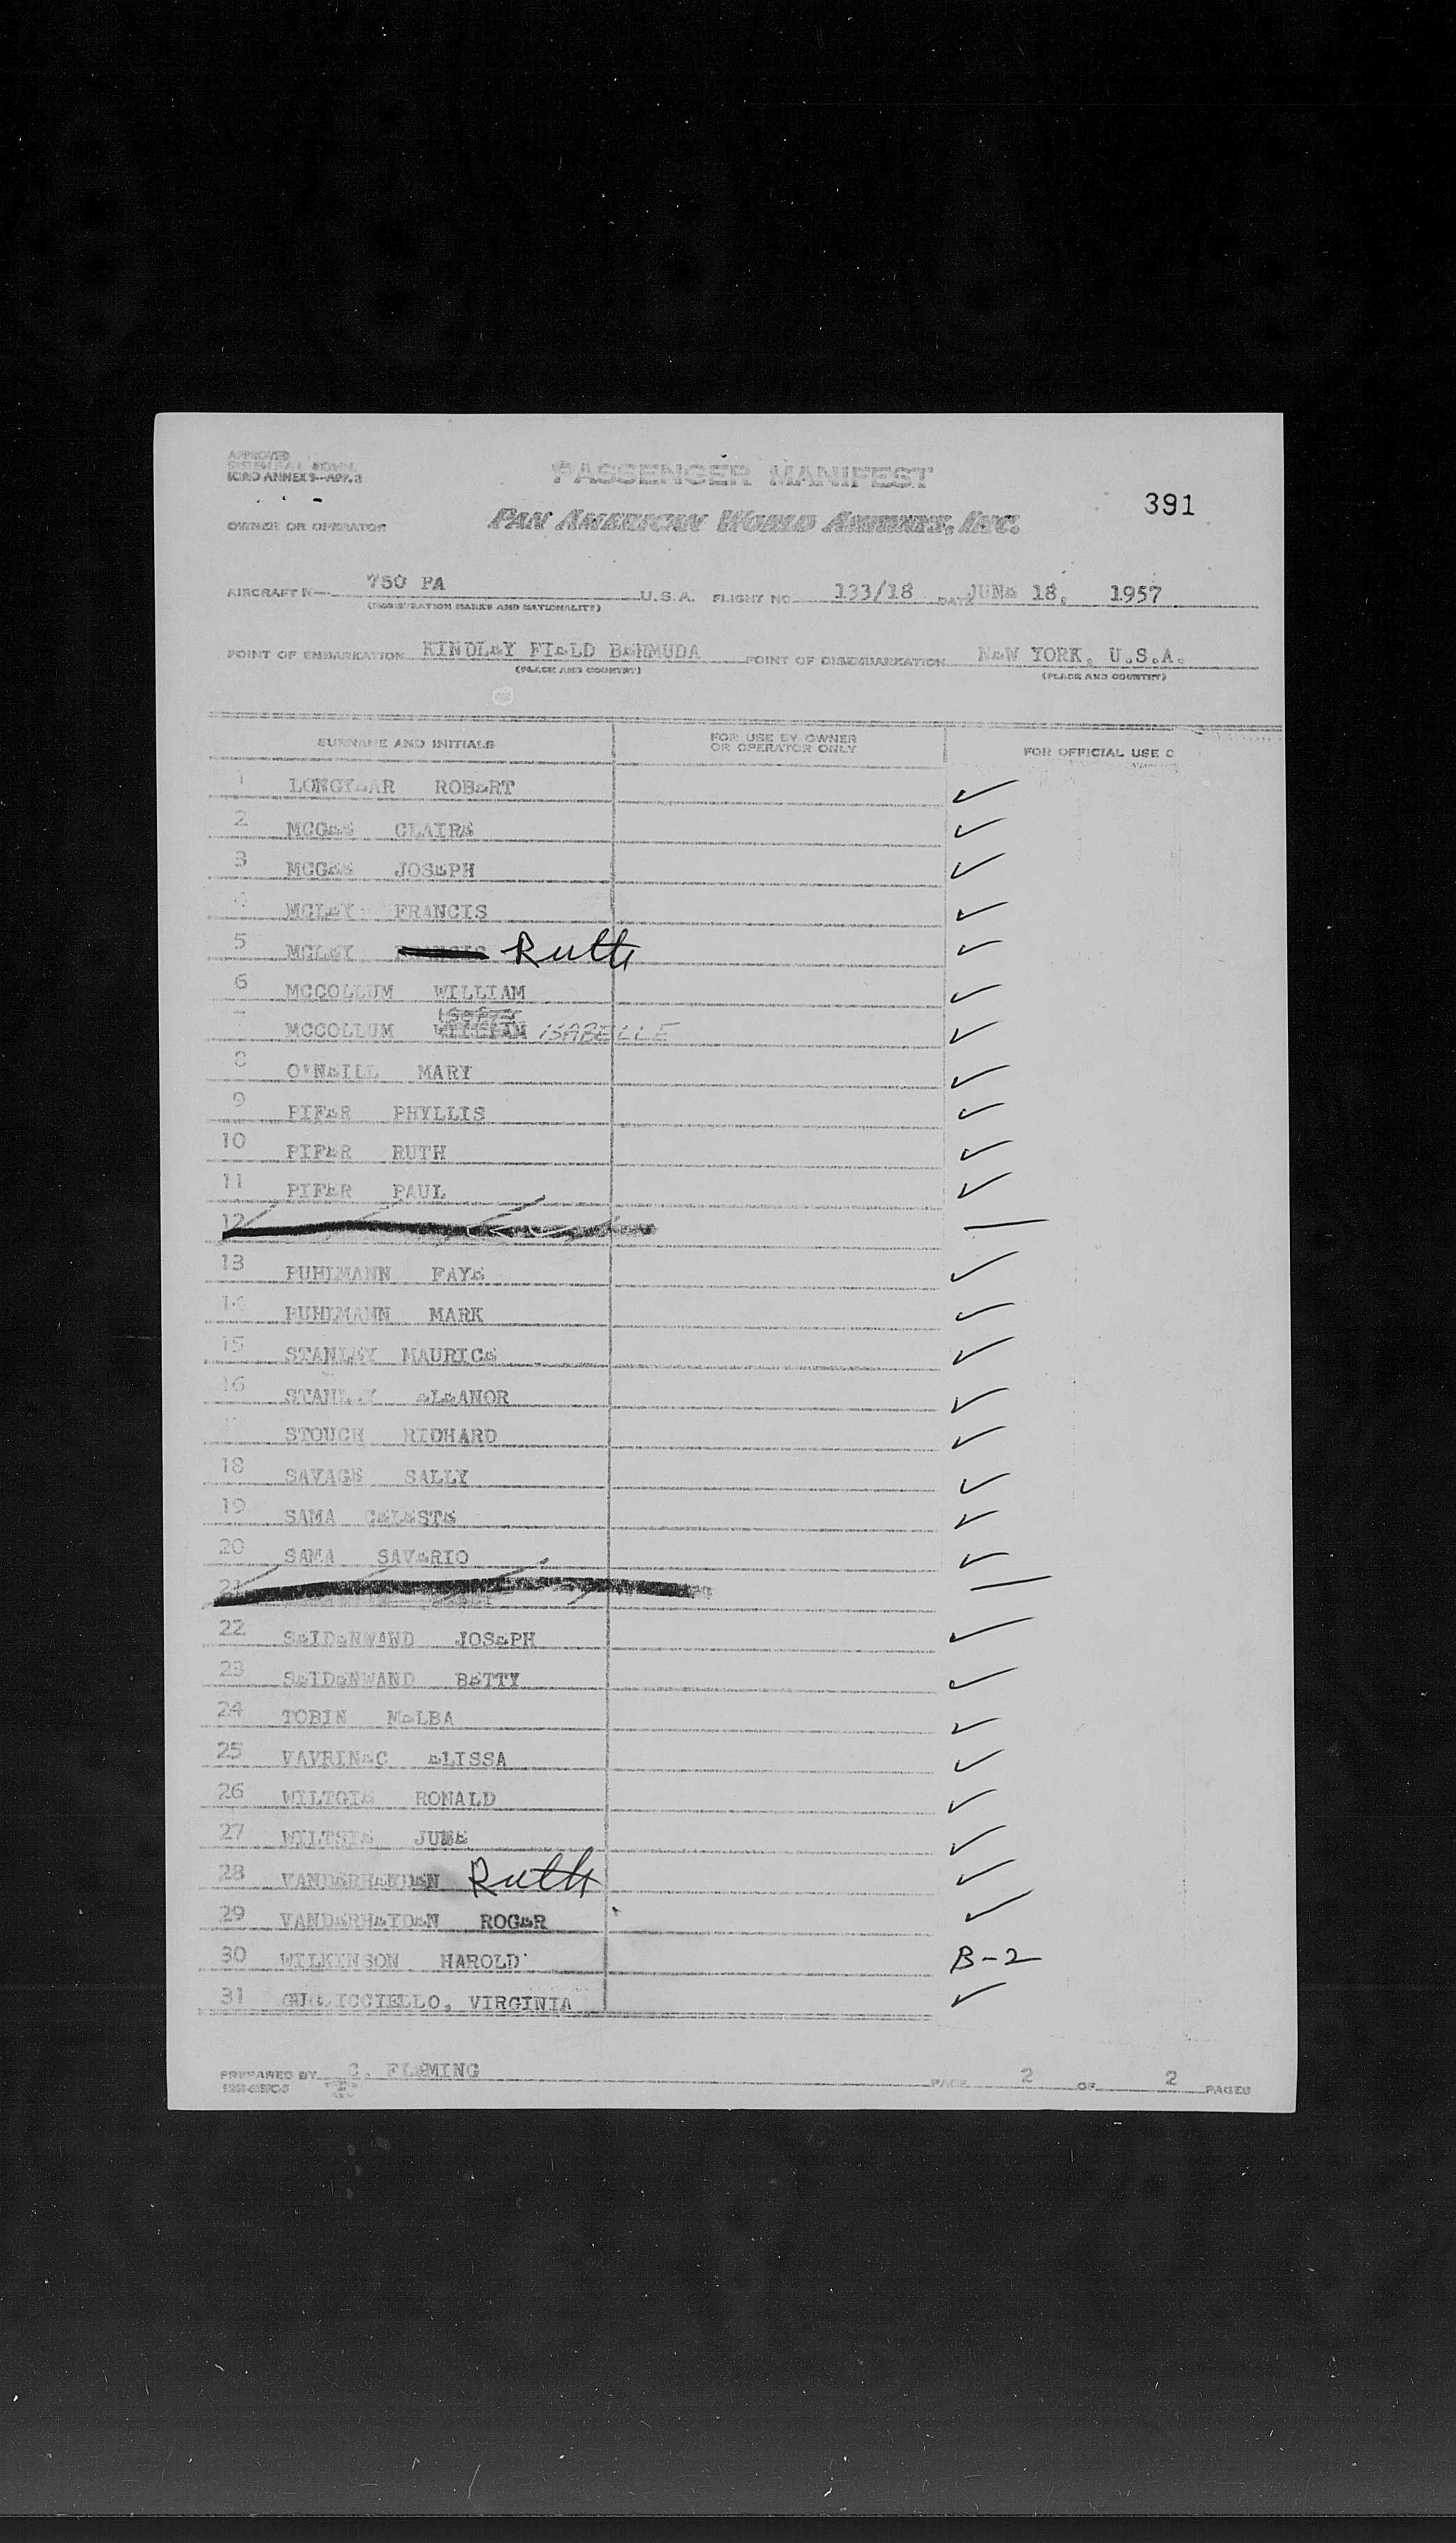 APPROVED
ICAO ANNEX 9-APP. 3
PASSENGER MANIFEST
391
OWNER OR OPERATOR PAN AMERICAN WORLD AIRWAYS, INC.
AIRCRAFT N— 750 PA U.S.A. FLIGHT NO. 133/18 DATE JUNE 18, 1957
(REGISTRATION MARKS AND NATIONALITY)
POINT OF EMBARKATION KINDLEY FIELD BERMUDA POINT OF DISEMBARKATION NEW YORK, U.S.A.
(PLACE AND COUNTRY) (PLACE AND COUNTRY)
SURNAME AND INITIALS FOR USE BY OWNER OR OPERATOR ONLY FOR OFFICIAL USE O
1 LONGYEAR ROBERT ✓
2 MCGEE CLAIRE ✓
3 MCGEE JOSEPH ✓
4 MCLEY FRANCIS ✓
5 MCLEY Ruth ✓
6 MCCOLLUM WILLIAM ✓
7 MCCOLLUM WILLIAM ISABELLE ✓
8 O'NEILL MARY ✓
9 PIFER PHYLLIS ✓
10 PIFER RUTH ✓
11 PIFER PAUL ✓
12
13 PUHLMANN FAYE ✓
14 PUHLMANN MARK ✓
15 STANLEY MAURICE ✓
16 STANLEY ELEANOR ✓
STOUCH RICHARD ✓
18 SAVAGE SALLY ✓
19 SAMA CELESTE ✓
20 SAMA SAVERIO ✓
21
22 SEIDENWAND JOSEPH ✓
23 SEIDENWAND BETTY ✓
24 TOBIN MELBA ✓
25 VAVRINEC ELISSA ✓
26 WILTGIE RONALD ✓
27 WILTSIE JUNE ✓
28 VANDERHEYDEN Ruth ✓
29 VANDERHEYDEN ROGER ✓
30 WILKINSON HAROLD B-2
31 VIRGINIA ✓
PREPARED BY C. FLEMING PAGE 2 OF 2 PAGES